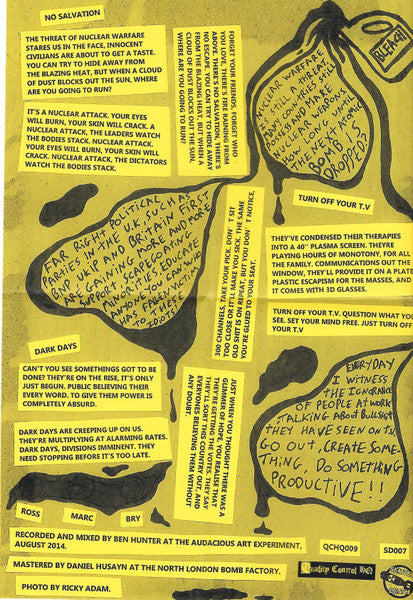 NO SALVATION
THE THREAT OF NUCLEAR WARFARE
STARES US IN THE FACE, INNOCENT
CIVILIANS ARE ABOUT TO GET A TASTE.
YOU CAN TRY TO HIDE AWAY FROM
THE BLAZING HEAT, BUT WHEN A CLOUD
OF DUST BLOCKS OUT THE SUN, WHERE
ARE YOU GOING TO RUN?
IT'S A NUCLEAR ATTACK. YOUR EYES
WILL BURN, YOUR SKIN WILL CRACK. A
NUCLEAR ATTACK, THE LEADERS WATCH
THE BODIES STACK. NUCLEAR ATTACK.
YOUR EYES WILL BURN, YOUR SKIN WILL
CRACK. NUCLEAR ATTACK, THE DICTATORS
WATCH THE BODIES STACK.
FORGET YOUR FRIENDS. FORGET WHO
YOU LOVE. THERE'S FIRE RAINING FROM
ABOVE. THERE'S NO SALVATION. THERE'S
NO ESCAPE. YOU CAN TRY TO HIDE AWAY
FROM THE BLAZING HEAT, BUT WHEN A
CLOUD OF DUST BLOCKS OUT THE SUN,
WHERE ARE YOU GOING TO RUN?
BLEACH
NUCLEAR WARFARE
IS STILL A THREAT.
MANY COUNTRIES STILL
POSSESS AND MAKE
NUCLEAR WEAPONS.
HOW LONG UNTIL
THE NEXT ATOMIC
BOMB IS
DROPPED?
FAR RIGHT POLITICAL
PARTIES IN THE U.K, SUCH AS
BNP UKIP AND BRITAIN FIRST
ARE GAINING MORE AND MORE
SUPPORT, SCAPEGOATING
MINORITIES. EDUCATE
ANYONE YOU CAN WHO
HAS FALLEN VICTIM
TO THESE
IDIOTS!
TURN OFF YOUR T.V
THEY'VE CONDENSED THEIR THERAPIES
INTO A 40" PLASMA SCREEN. THEYRE
PLAYING HOURS OF MONOTONY, FOR ALL
THE FAMILY. COMMUNICATIONS OUT THE
WINDOW, THEY'LL PROVIDE IT ON A PLATE
PLASTIC ESCAPISM FOR THE MASSES, AND
IT COMES WITH 3D GLASSES.
300 CHANNELS, TAKE YOUR PICK. DON'T SIT
TOO CLOSE OR IT'LL MAKE YOU SICK. THE SAME
OLD SHIT IS ON REPEAT, BUT YOU DON'T NOTICE,
YOU'RE GLUED TO YOUR SEAT.
TURN OFF YOUR T.V. QUESTION WHAT YOU
SEE. SET YOUR MIND FREE. JUST TURN OFF
YOUR T.V
DARK DAYS
CAN'T YOU SEE SOMETHINGS GOT TO BE
DONE? THEY'RE ON THE RISE, IT'S ONLY
JUST BEGUN. PUBLIC BELIEVING THEIR
EVERY WORD. TO GIVE THEM POWER IS
COMPLETELY ABSURD.
DARK DAYS ARE CREEPING UP ON US.
THEY'RE MULTIPLYING AT ALARMING RATES.
DARK DAYS, DIVISIONS IMMINENT. THEY
NEED STOPPING BEFORE IT'S TOO LATE.
JUST WHEN YOU THOUGHT THERE WAS A
GLIMMER OF HOPE, YOU REALISE THAT
THEY'RE GETTING THE VOTES. THEY SAY
THEY'LL SORT THIS COUNTRY OUT, AND
EVERYONES BELIEVING THEM WITHOUT
ANY DOUBT.
EVERYDAY
I WITNESS
THE IGNORANCE
OF PEOPLE AT WORK
TALKING ABOUT BULLSHIT
THEY HAVE SEEN ON T.V.
GO OUT, CREATE SOME-
THING, DO SOMETHING
PRODUCTIVE!!
ROSS MARC BRY
RECORDED AND MIXED BY BEN HUNTER AT THE AUDACIOUS ART EXPERIMENT,
AUGUST 2014.
QCHQ009 SD007
MASTERED BY DANIEL HUSAYN AT THE NORTH LONDON BOMB FACTORY.
Quality Control HQ
PHOTO BY RICKY ADAM.